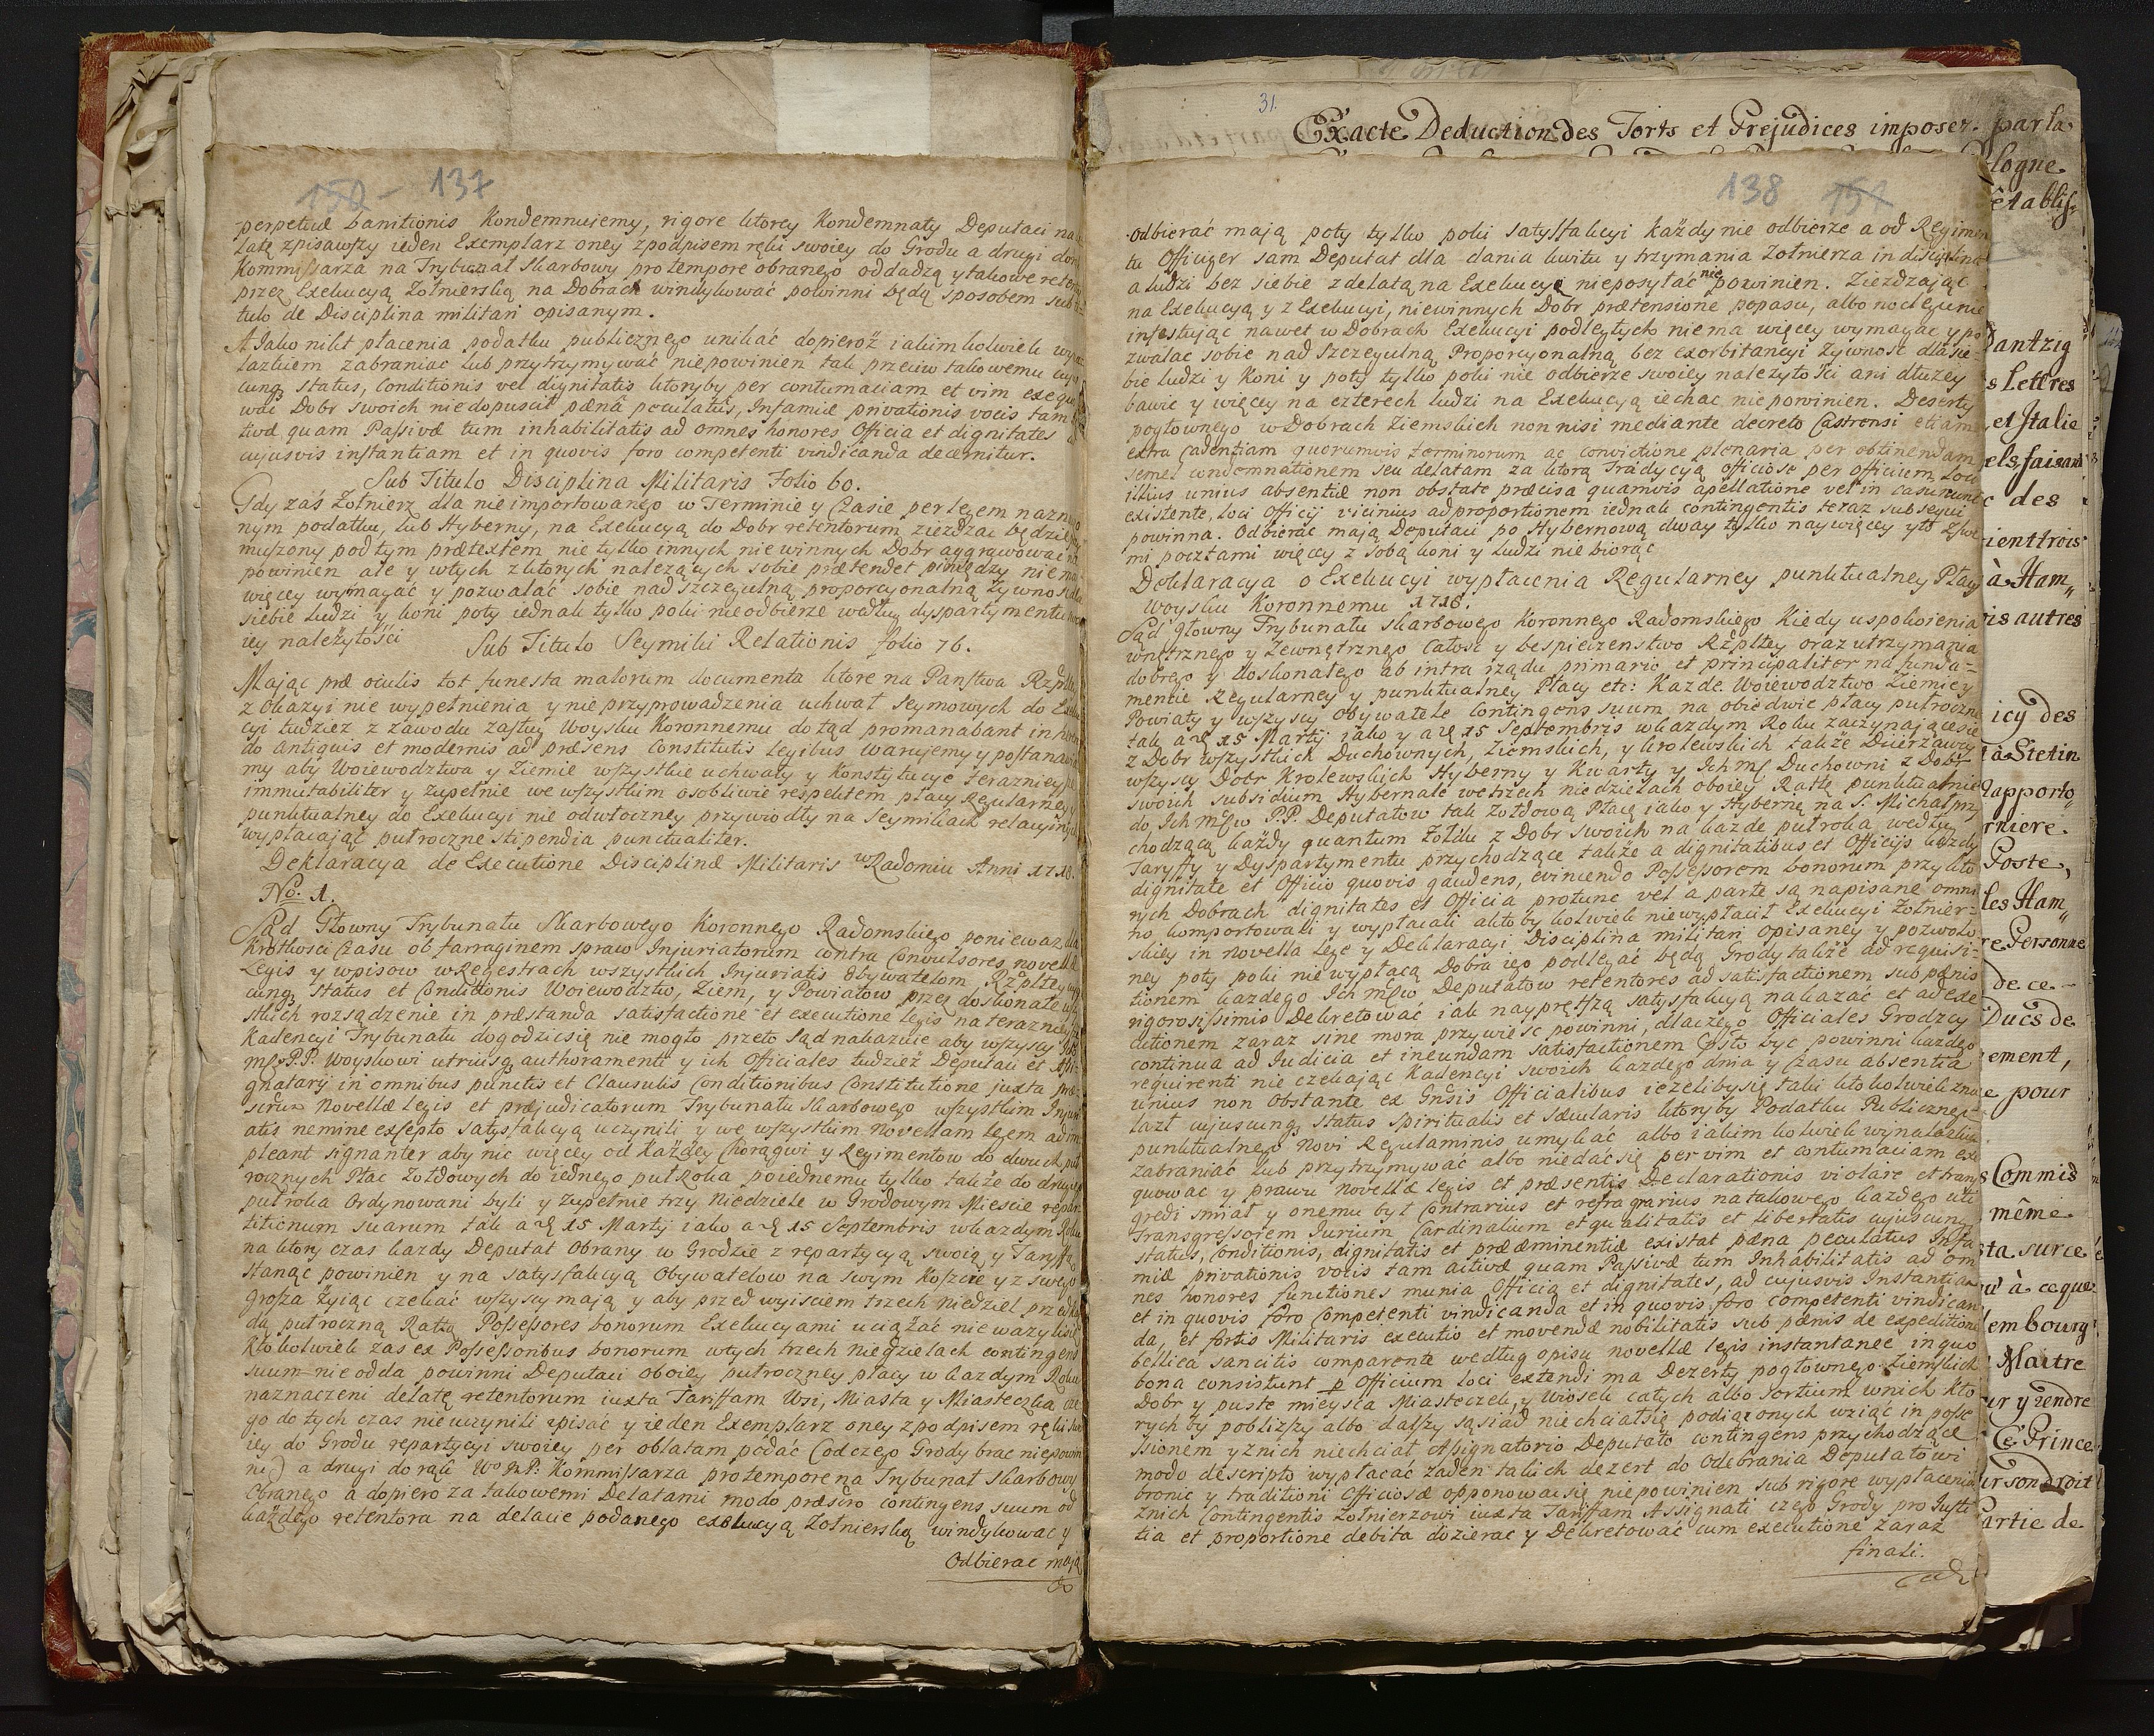 150 - 137
perpetuæ banitionis Kondemnujemy, rigore ktorey Kondemnaty Deputaci na
latę zpisawszy ieden Exemplarz oney zpodpisem ręki swoiey do Grodu a drugi do
Kommissarza na Trybunał Skarbowy pro tempore obranego oddadzą y takowe
przez Exekucyą Zołnierską na Dobrach windykować powinni będą sposobem sub
tulo de Disciplina militari opisanym.
A Jako nikt płacenia podatku publicznego unikać dopieroż iakimkolwiek
lazkiem zabraniac lub przytrzymywać niepowinien tak przeciw takowemu
cunq status, Conditionis vel dignitatis ktoryby per contumaciam et vim exequo
wać Dobr swoich niedopuscił pœnâ peculatûs, Infamiæ privationis vocis tam
tivæ quam Passivæ tum inhabilitatis ad omnes honores Officia et dignitates
cujusvis instantiam et in quovis foro competenti vindicanda decernitur.
Sub Titulo Disciplina Militaris Folio 60.
Gdy zaś Zołnierz dla nie importowanego w Terminie y Czasie per legem nazna
nym podatku, lub Hyberny, na Exekucyą do Dobr retentorum ziezdzac będzie
muszony pod tym prætextem nie tylko innych niewinnych Dobr aggrawować
powinien ale y wtych z ktorych nalezących sobie prætendet pieniędzy nie ma
więcey wymagać y pozwalać sobie nad szczegulną proporcyonalną żywnosc dla
siebie ludzi y koni poty iednak tylko poki nieodbierze według dyspartymentu
iey należytości Sub Titulo Seymiki Relationis folio 76.
Mając præ oculis tot funesta malorum documenta ktore na Panstwa Rzpltey
z Okazyi nie wypełnienia y nie przyprowadzenia uchwał Seymowych do Exeku
cyi tudziez z zawodu zasług Woysku Koronnemu dotąd promanabant inhæren
do antiquis et modernis ad præsens Constitutis legibus warujemy y postanawia
my aby Woiewodztwa y Ziemie wszystkie uchwały y Konstytucye teraznieysze
immutabiliter y zupełnie we wszystkim osobliwie respektem płacy Regularney
punktualney do Exekucyi nie odwłoczney przywiodły na Seymikach relacyinych
wypłacając putroczne stipendia punctualiter.
Deklaracya de Executione Disciplinæ Militaris w Radomiu Anni 1718.
No. 1.
Sąd Głowny Trybunału Skarbowego Koronnego Radomskiego poniewaz dla
Krotkosci Czasu ob farraginem spraw Injuriatorum contra Convulsores novellæ
Legis y wpisow w Regestrach wszystkich Injuriatis Obywatelom Rzpltey cujus
cunq status et Conditionis Woiewodztw, Ziem, y Powiatow przez doskonałe wszy
stkich rozsądzenie in præstanda satisfactione et executione legis na teraznieyszey
Kadencyi Trybunału dogodzic się nie mogło przeto Sąd nakazuie aby wszyscy Ich
mść P.P. Woyskowi utriusq authoramenti y ich Officiales tudziez Deputaci et Assi
gnatarij in omnibus punctis et Clausulis Conditionibus Constitutione juxta præ
scrum Novellæ legis et præjudicatorum Trybunału Skarbowego wszystkim Injuri
atis nemine excepto satysfakcyą uczynili y we wszystkim Novellam legem adim
pleant signanter aby nic więcey od Każdey Chorągwi y Regimentow do dwuch puł
rocznych Płac Zołdowych do iednego pułroka poiednemu tylko także do drugiego
pułroka Ordynowani byli y zupełnie trzy Niedziele w Grodowym Miescie repar
titionum suarum tak a 15 Martij iako a 15 Septembris wkazdym Roku
na ktory czas kazdy Deputat Obrany w Grodzie z repartycyą swoią y Taryffą
stanąc powinien y na satysfakcyą Obywatelow na swym Koszcie y z swego
grosza żyiąc czekać wszyscy mają y aby przed wyisciem trzech niedziel przed
dą putroczną Rattą Possessores bonorum Exekucyami uciążać nie wazyli się
Ktokolwiek zas ex Possessoribus bonorum wtych trzech niedzielach contingens
suum nie odda powinni Deputaci oboiey putroczney płacy w kazdym Roku
naznaczeni delatę retentorum iuxta Tariffam Wsi, Miasta y Miasteczka cze
go do tych czas nie uczynili spisać y ieden Exemplarz oney z podpisem ręki swo
iey do Grodu repartycyi swoiey per oblatam podać (od czego Grody brac niepowin
ni) a drugi do rąk Wo P: Kommissarza pro tempore na Trybunał Skarbowy
Obranego a dopiero za takowemi Delatami modo præscrto contingens suum od
każdego retentora na delacie podanego exekucyą Zołnierską windykować y
Odbierac mają
31.
Exacte Deduction des Torts et Prejudices imposer. par la
logne
établis
138
odbierać mają poty tylko poki satysfakcyi każdy nie odbierze a od Regimen
tu Officyer sam Deputat dla dania kwitu y trzymania Zołnierza in disciplina
a ludzi bez siebie z delatą na Exekucyę nieposyłać nie powinien. Ziezdzając
na Exekucyą y z Exekucyi, niewinnych Dobr prætensione popasu, albo noclegu nie
infestując nawet w Dobrach Exekucyi podległych niema więcey wymagac y po
zwalac sobie nad szczegulną Proporcyonalną bez exorbitancyi żywnosc dla sie
bie ludzi y Koni y poty tylko poki nie odbierze swoiey nalezytości ani dłużey
bawic y więcey na czterech ludzi na Exekucyą iechac nie powinien. Deserty
pogłownego w Dobrach Ziemskich non nisi mediante decreto Castrensi etiam
extra Cadentiam quorumvis terminorum ac convictione plenaria per obtinendam
semel condemnationem seu delatam za ktorą Tradycyą officiose per officium loci
illius unius absentiæ non obstate præcisa quamvis apellatione vel in casu nunc
existente, loci Officij vicinius ad proportionem iednak contingentis teraz subsequi
powinna. Odbierac mają Deputaci po Hybernową dway tylko naywięcey y to z swe
mi pocztami więcey z sobą koni y ludzi nie biorąc
Deklaracya o Exekucyi wypłacenia Regularney punktualney Płacy
Woysku Koronnemu 1718.
Sąd Głowny Trybunału Skarbowego Koronnego Radomskiego Kiedy uspokoienia
wnętrznego y Zewnętrznego Całosc y bespieczenstwo Rzpltey oraz utrzymania
dobrego y doskonałego ab intra rządu primario et principaliter na funda-
mencie Regularney y punktualney Płacy etc: Kazde Woiewodztwo Ziemie y
Powiaty y wszyscy Obywatele Contingens suum na obiedwie płacy putroczne
tak a 15 Martij iako y a 15 Septembris wkazdym Roku zaczynające się
z Dobr wszystkich Duchownych, Ziemskich, y krolewskich także Dzierzawcy
wszyscy Dobr Krolewskich Hyberny y Kwarty y Ichmść Duchowni z Dobr
swoich subsidium Hybernale wetrzech niedzielach oboiey Ratłę punktualnie
do Ichmściw P.P. Deputatow tak zołdową Płacę iako y Hybernę na S. Michał przy
chodzącą każdy quantum Zołdu z Dobr swoich na kazde pułroka według
Taryffy y Dyspartymentu przychodzące także a dignitatibus et Officijs kazdy
dignitate et Officio quovis gaudens, eviniendo Possessorem bonorum przy kto
rych Dobrach dignitates et Officia protunc vel a parte są napisane omni
no komportowali y wypłacali a ktoby kolwiek niewypłacił Exekucyi Zołnier-
skiey in novella lege y Deklaracyi Disciplina militari opisaney y pozwolo
ney poty poki nie wypłacą Dobra iego podlegać będą Grody także ad requisi-
tionem kazdego Ichmściw Deputatow retentores ad satisfactionem sub pœnis
rigorosissimis Dekretować iak nayprętszą satysfakcyą nakazać et ad exe
cutionem zaraz sine mora przywiesc powinni, dlaczego Officiales Grodzcy
continua ad Iudicia et ineundam satisfactionem Gosto być powinni kazdego
requirenti nie czekając Kadencyi swoich kazdego dnia y Czasu absentia
unius non Obstante ex Gnsis Officialibus iezeliby się taki ktokolwiek zna
lazł cujuscunq status Spiritualis et Sæcularis ktoryby Podatku Publicznego
punktualnego Novi Regulaminis umykać albo iakimkolwiek wynalazkiem
zabraniać lub przytrzymywać albo niedać się per vim et contumaciam exe
quowac y prawu Novellæ legis et præsentis Declarationis violare et trans
gredi smiał y onemu był Contrarius et refragrarius na takowego kazdego uti
Transgressorem Jurium Cardinalium et qualitatis et libertatis cujuscunq
status, Conditionis, dignitatis et præeminentiæ existat pæna peculatus Infa
miæ privationis vocis tam activæ quam Passivæ tum Inhabilitatis ad om
nes honores functiones munia Officia et dignitates, ad cujusvis Instantiam
et in quovis foro Competenti vindicanda et in quovis foro competenti vindican
da, et fortis Militaris executio et movendæ nobilitatis sub pœnis de expeditione
bellica sancitis comparente według opisu novellæ legis instantanee in quo
bona consistunt p Officium loci extendi ma Dezerty pogłownego Ziemskich
Dobr y puste mieysca Miasteczek, y Wiosek całych albo Sortium wnich kto
rych by pobliszszy albo dalszy sąsiad niechciał się podiąć onych wziąc in posse
ssionem y z nich niechciał Assignatorio Deputato contingens przychodzące
modo descripto wypłacać zaden takich dezert do Odebrania Deputatowi
bronic y traditioni Officiosæ opponowac się niepowinien sub rigore wypłacenia
znich Contingentis Zołnierzowi iuxta Tariffam Assignati czego Grody pro Iusti
tia et proportione debita dozierac y Dekretować cum executione zaraz
finali.
Dantzig
s lettres
et Italie
els, faisant
c des
ient trois
à Ham„
is autres
icy des
à Stetin
rapporto„
rniere.
Poste,
les Ham„
re Personne
de ce-
Ducs de
ement,
e pour
s Commis
même
sta surce
u à ceque
embourg
Maitre
ur y rendre
Ce Prince
ur son droit
artie de